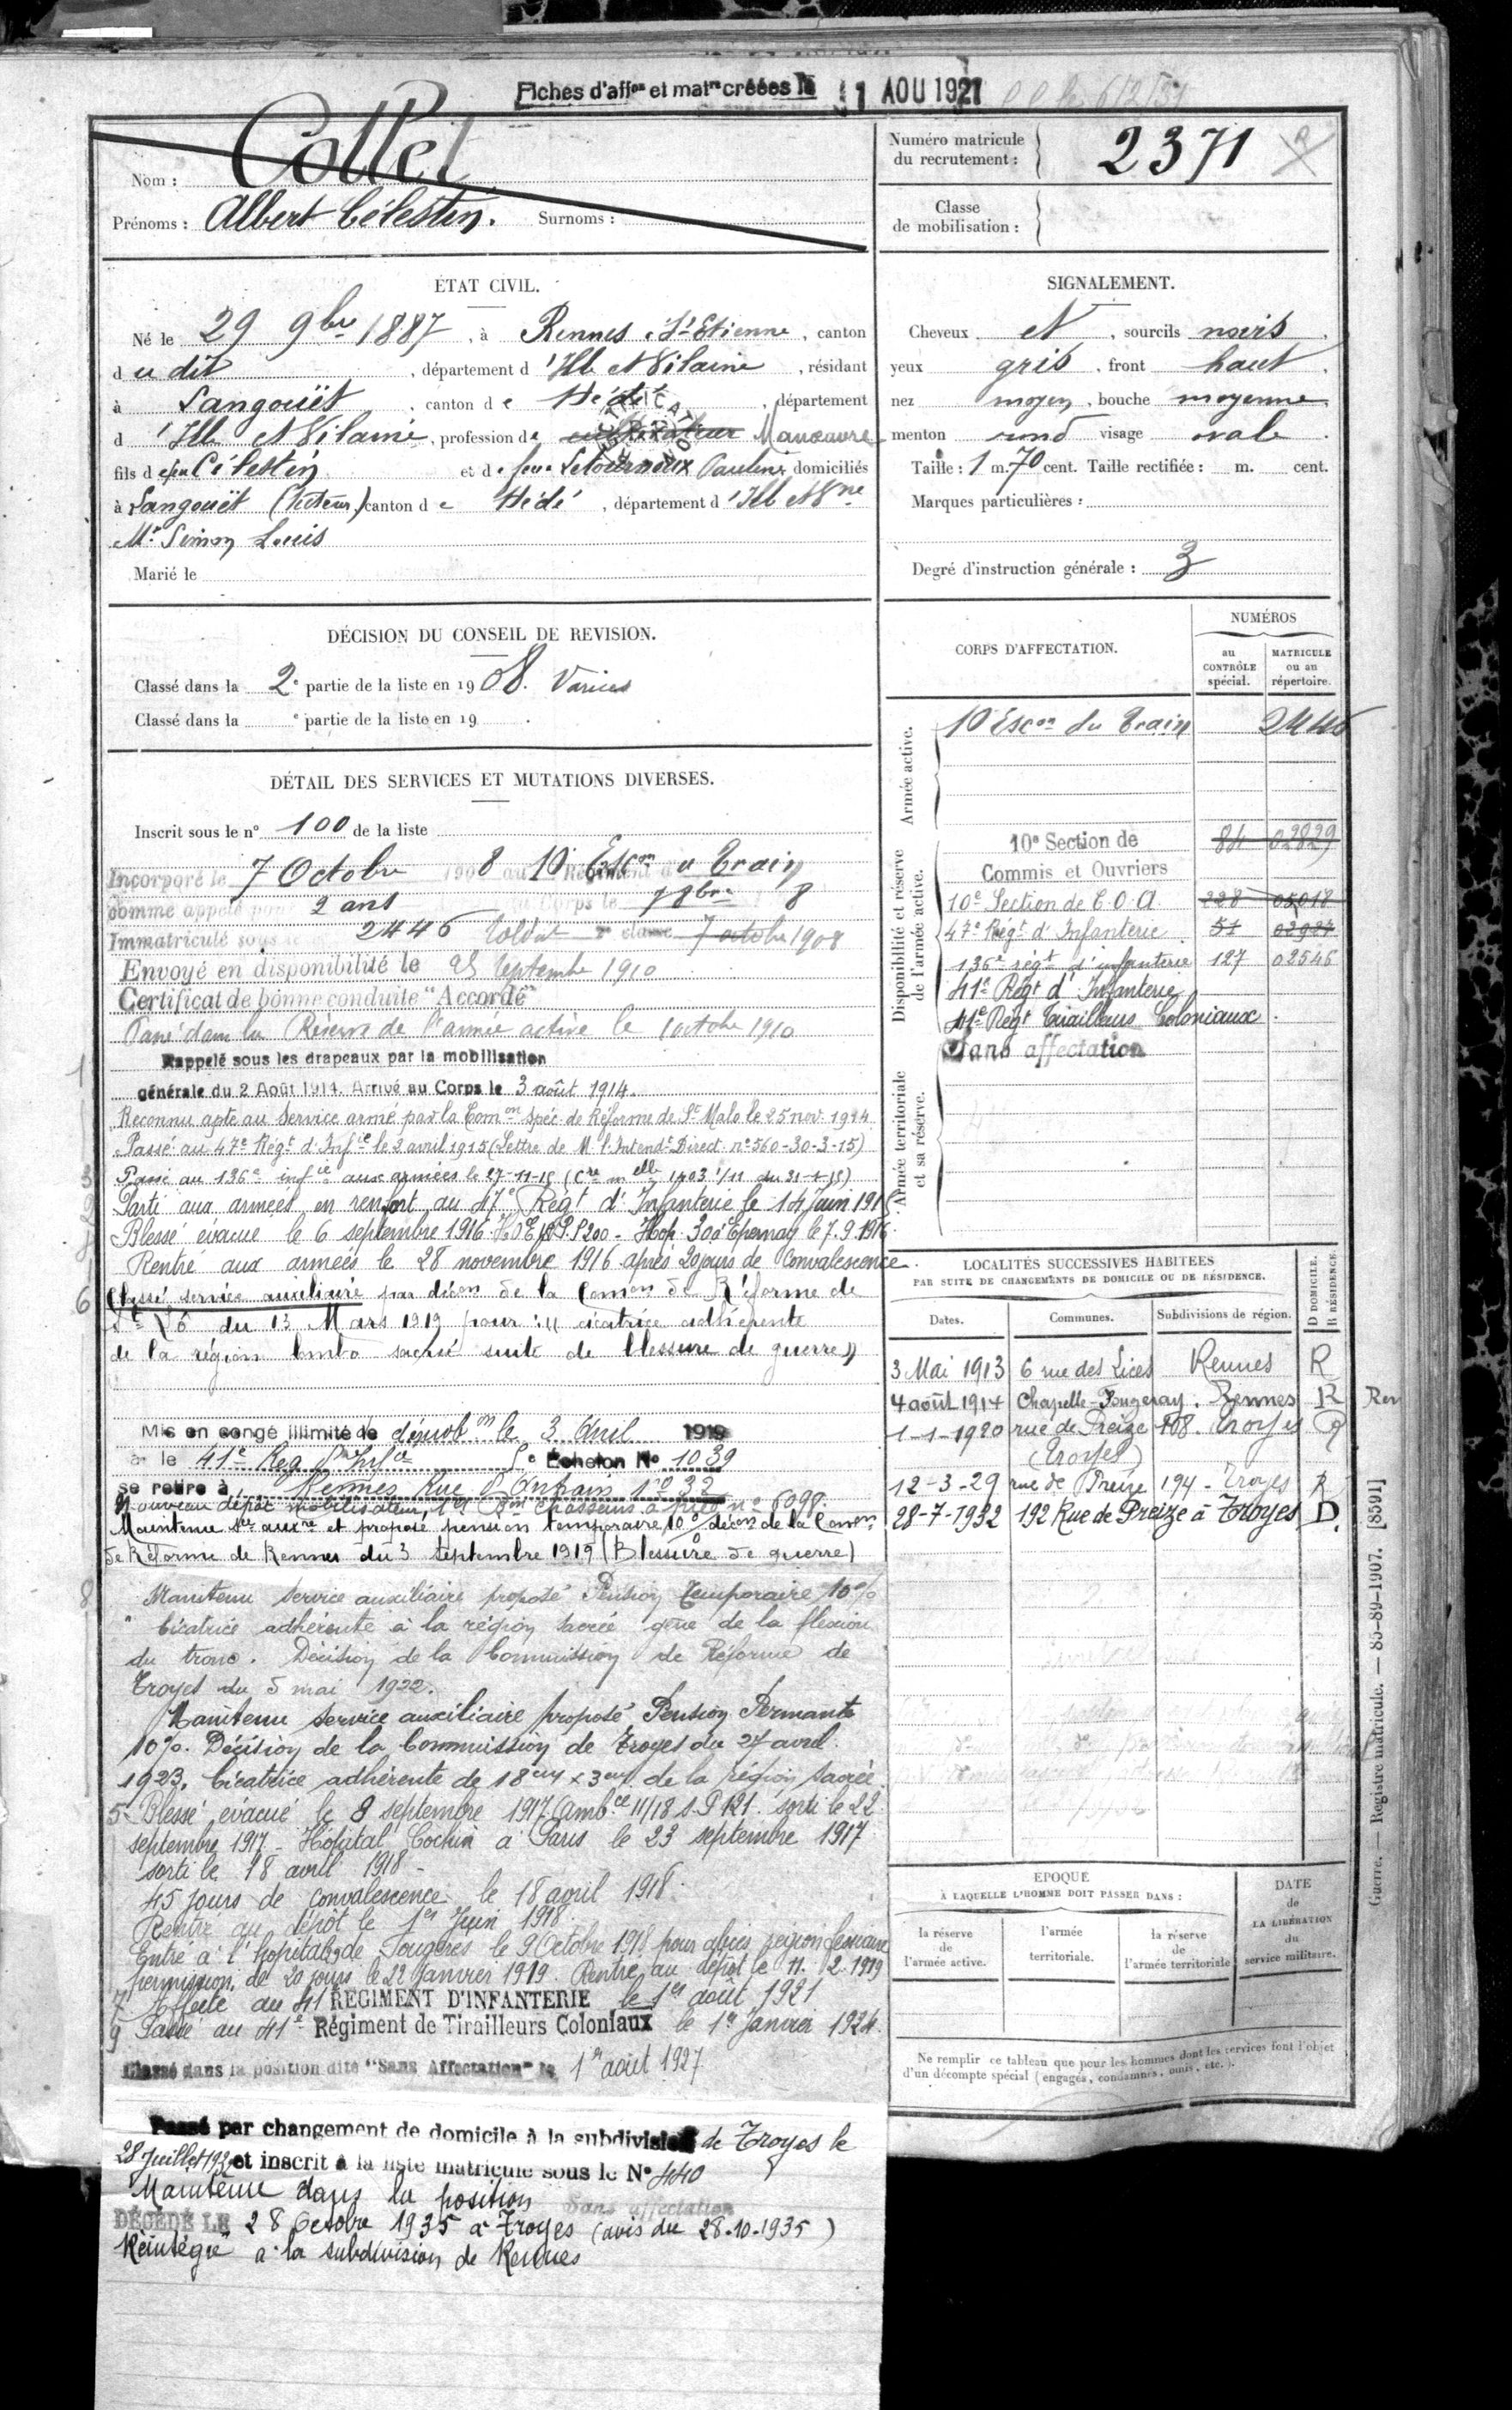 Fiches d'aff<sup>on</sup> et mat<sup>re</sup> créées le 1 AOU 1927
Nom : Collet
Prénoms : Albert Célestin. Surnoms :
Numéro matricule du recrutement : 2371
Classe de mobilisation :
ÉTAT CIVIL.
Né le 29 9bre 1887, à Rennes St Etienne, canton
du dit, département d'Ille et Vilaine, résidant
à Langouët, canton de Hédé, département
d'Ille et Vilaine, profession de cultivateur Manœuvre
fils de feu Célestin et de feue Letournoux Pauline domiciliés
à Langouët (tuteur) canton de Hédé, département d'Ille et Vne
Mr Simon Louis
Marié le
SIGNALEMENT.
Cheveux N, sourcils noirs
yeux gris, front haut
nez moyen, bouche moyenne
menton rond visage ovale
Taille : 1 m. 70 cent. Taille rectifiée : m. cent.
Marques particulières :
Degré d'instruction générale : 3
DÉCISION DU CONSEIL DE REVISION.
Classé dans la 2e partie de la liste en 1908. Varices
Classé dans la e partie de la liste en 19 .
DÉTAIL DES SERVICES ET MUTATIONS DIVERSES.
Inscrit sous le n° 100 de la liste
Incorporé le 7 Octobre 1908 au 10e Escon du Train
comme appelé pour 2 ans au Corps le 7 8bre 8
Immatriculé sous le 2446 Soldat 2e classe 7 octobre 1908
Envoyé en disponibilité le 25 Septembre 1910
Certificat de bonne conduite "Accordé"
Passé dans la Réserve de l'armée active le 1 octobre 1910
Rappelé sous les drapeaux par la mobilisation
générale du 2 Août 1914. Arrivé au Corps le 3 août 1914.
Reconnu apte au Service armé par la Comon Spéc. de Réforme de St Malo le 25 nov. 1914
Passé au 47e Régt d'Infie le 2 avril 1915 (Lettre de M. l'Intendt Direct. n° 560-30-3-15)
Passé au 136e infie aux armées le 27-11-15
Parti aux armées en renfort au 47e Régt d'Infanterie le 14 Juin 191
Blessé évacué le 6 septembre 1916 S.P. 200 - Hop. 300 Epernay le 7.9.1916
Rentré aux armées le 28 novembre 1916 après 20 jours de Convalescence.
6 Classé service auxiliaire par décon de la Comon de Réforme de
du 13 Mars 1919 pour : "cicatrice adhérente
de la région lombo sacrée suite de blessure de guerre"
Mis en congé illimité de démobon le 3 Avril 1919
le 41e Reg d'Infie Echelon No 1039
se retire à Rennes Rue d'Antrain n° 32
Maintenu sce auxre et proposé pension temporaire 10% décon de la Comon
de Réforme de Rennes du 3 septembre 1919 (Blessure de guerre)
8 Maintenu Service auxiliaire proposé Pension Temporaire 10%
"Cicatrice adhérente à la région sacrée gêne de la flexion
du tronc. Décision de la Commission de Réforme de
Troyes du 5 mai 1922.
Maintenu service auxiliaire proposé Pension Permante
10%. Décision de la Commission de Troyes du 27 avril
1923. Cicatrice adhérente de 18cm x 3cm de la région sacrée
5 Blessé évacué le 8 septembre 1917. Ambce 11/18 S.P 121. sorti le 22
septembre 1917 - Hôpital Cochin à Paris le 23 septembre 1917
sorti le 18 avril 1918 -
45 jours de convalescence le 18 avril 1918.
Rentre au dépôt le 1er Juin 1918
Entre à l'hopital de Fougères le 9 Octobre 1918 pour abcès région fessière
permission de 20 jours le 22 Janvier 1919. Rentré au dépôt le 11. 2. 1919
7 Affecté au 41 RÉGIMENT D'INFANTERIE le 1er août 1921
9 Passé au 41e Régiment de Tirailleurs Coloniaux le 1er Janvier 1924.
Classé dans la position dite "Sans Affectation" le 1er août 1927
Passé par changement de domicile à la subdivision de Troyes le
28 Juillet 1932 et inscrit à la liste matricule sous le N° 440
Maintenu dans la position Sans affectation
DÉCÉDÉ LE 28 Octobre 1935 à Troyes (avis du 28-10-1935)
Réintégré à la subdivision de Rennes
CORPS D'AFFECTATION.
NUMÉROS
au CONTRÔLE spécial.
MATRICULE ou au répertoire.
Armée active.
10 Escon du Train 2446
Disponibilité et réserve de l'armée active.
10e Section de Commis et Ouvriers 84 02829
10e Section de C.O.A 228 05018
47e Régt d'Infanterie 51 02927
136e régt d'infanterie 127 02546
41e Régt d'Infanterie
41e Régt Tirailleurs Coloniaux.
Sans affectation
Armée territoriale et sa réserve.
LOCALITÉS SUCCESSIVES HABITÉES
PAR SUITE DE CHANGEMENTS DE DOMICILE OU DE RÉSIDENCE.
Dates. Communes. Subdivisions de région. D DOMICILE. R RÉSIDENCE.
3 Mai 1913 6 rue des Lices Rennes R
4 août 1914 Chapelle-Fougeray. Rennes R
1-1-1920 rue de Preize 108. Troyes R
(Troyes)
12-3-29 rue de Preize 194 - Troyes R
28-7-1932 192 Rue de Preize à Troyes D.
EPOQUE
À LAQUELLE L'HOMME DOIT PASSER DANS :
la réserve de l'armée active.
l'armée territoriale.
la réserve de l'armée territoriale
DATE de LA LIBÉRATION du service militaire.
Ne remplir ce tableau que pour les hommes dont les services font l'objet
d'un décompte spécial (engagés, condamnés, omis, etc.).
Guerre. — Registre matricule. — 85-89-1907. [8591]